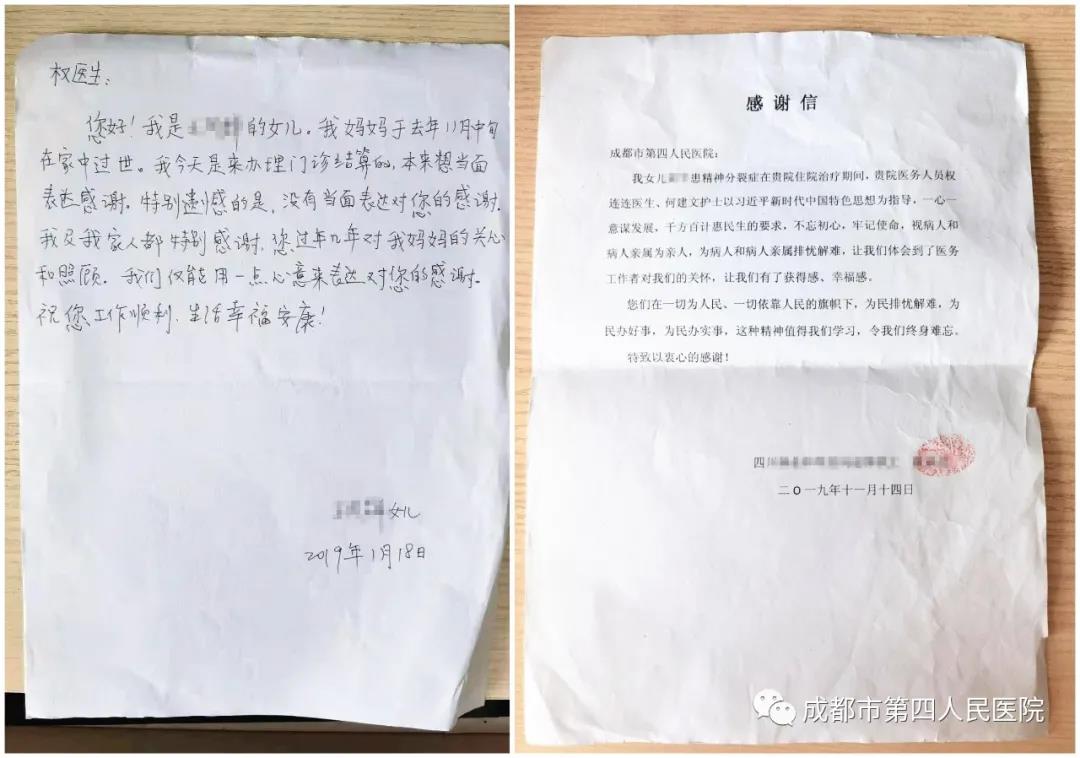 权医生：
您好！我是
的女儿。我妈妈于去年11月中旬
在家中过世。我今天是来办理门诊结算的，本来想当面
表达感谢。特别遗憾的是，没有当面表达对您的感谢。
我及我家人都特别感谢，您过年几年对我妈妈的关心
和照顾。我们仅能用一点心意来表达对您的感谢。
祝您工作顺利，生活幸福安康！
女儿
2019年1月18日
感谢信
成都市第四人民医院：
我女儿
患精神分裂症在贵院住院治疗期间，贵院医务人员权
连连医生、何建文护士以习近平新时代中国特色思想为指导，一心一
意谋发展，千方百计惠民生的要求，不忘初心，牢记使命，视病人和
病人亲属为亲人，为病人和病人亲属排忧解难，让我们体会到了医务
工作者对我们的关怀，让我们有了获得感、幸福感。
您们在一切为人民、一切依靠人民的旗帜下，为民排忧解难，为
民办好事，为民办实事，这种精神值得我们学习，令我们终身难忘。
特致以衷心的感谢！
四川
二〇一九年十一月十四日
成都市第四人民医院